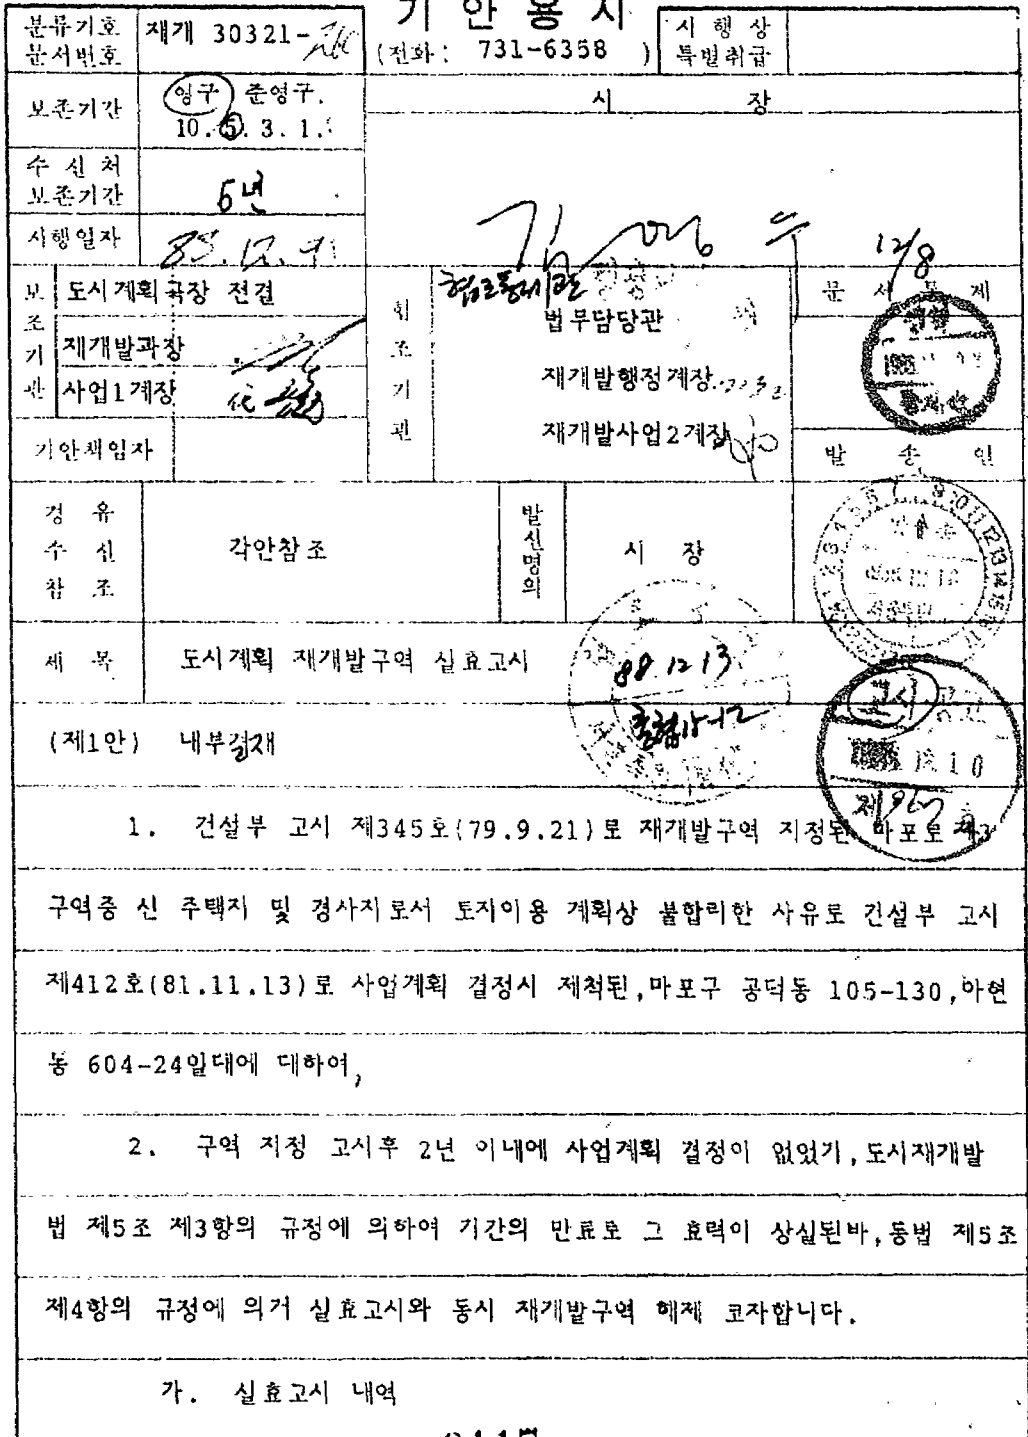 기 안 용 지
분류기호
문서번호
재개 30321-
(전화: 731-6358 )
시 행 상
특별취급
보존기간
영구 준영구.
10. 5. 3. 1.
시 장
수 신 처
보존기간
5년
시행일자
12/8
보조기관
도시계획국장 전결
재개발과장
사업1계장
기안책임자
협조기관
법무담당관
재개발행정계장
재개발사업2계장
문 서 통 제
발 송 인
경 유
수 신
참 조
각안참조
발신명의
시 장
제 목
도시계획 재개발구역 실효고시
88.12.13
고시 공고
(제1안) 내부결재
1. 건설부 고시 제345호(79.9.21)로 재개발구역 지정된 마포로 제3
구역중 신 주택지 및 경사지로서 토지이용 계획상 불합리한 사유로 건설부 고시
제412호(81.11.13)로 사업계획 결정시 제척된,마포구 공덕동 105-130,아현
동 604-24일대에 대하여,
2. 구역 지정 고시후 2년 이내에 사업계획 결정이 없었기,도시재개발
법 제5조 제3항의 규정에 의하여 기간의 만료로 그 효력이 상실된바,동법 제5조
제4항의 규정에 의거 실효고시와 동시 재개발구역 해제 코자합니다.
가. 실효고시 내역